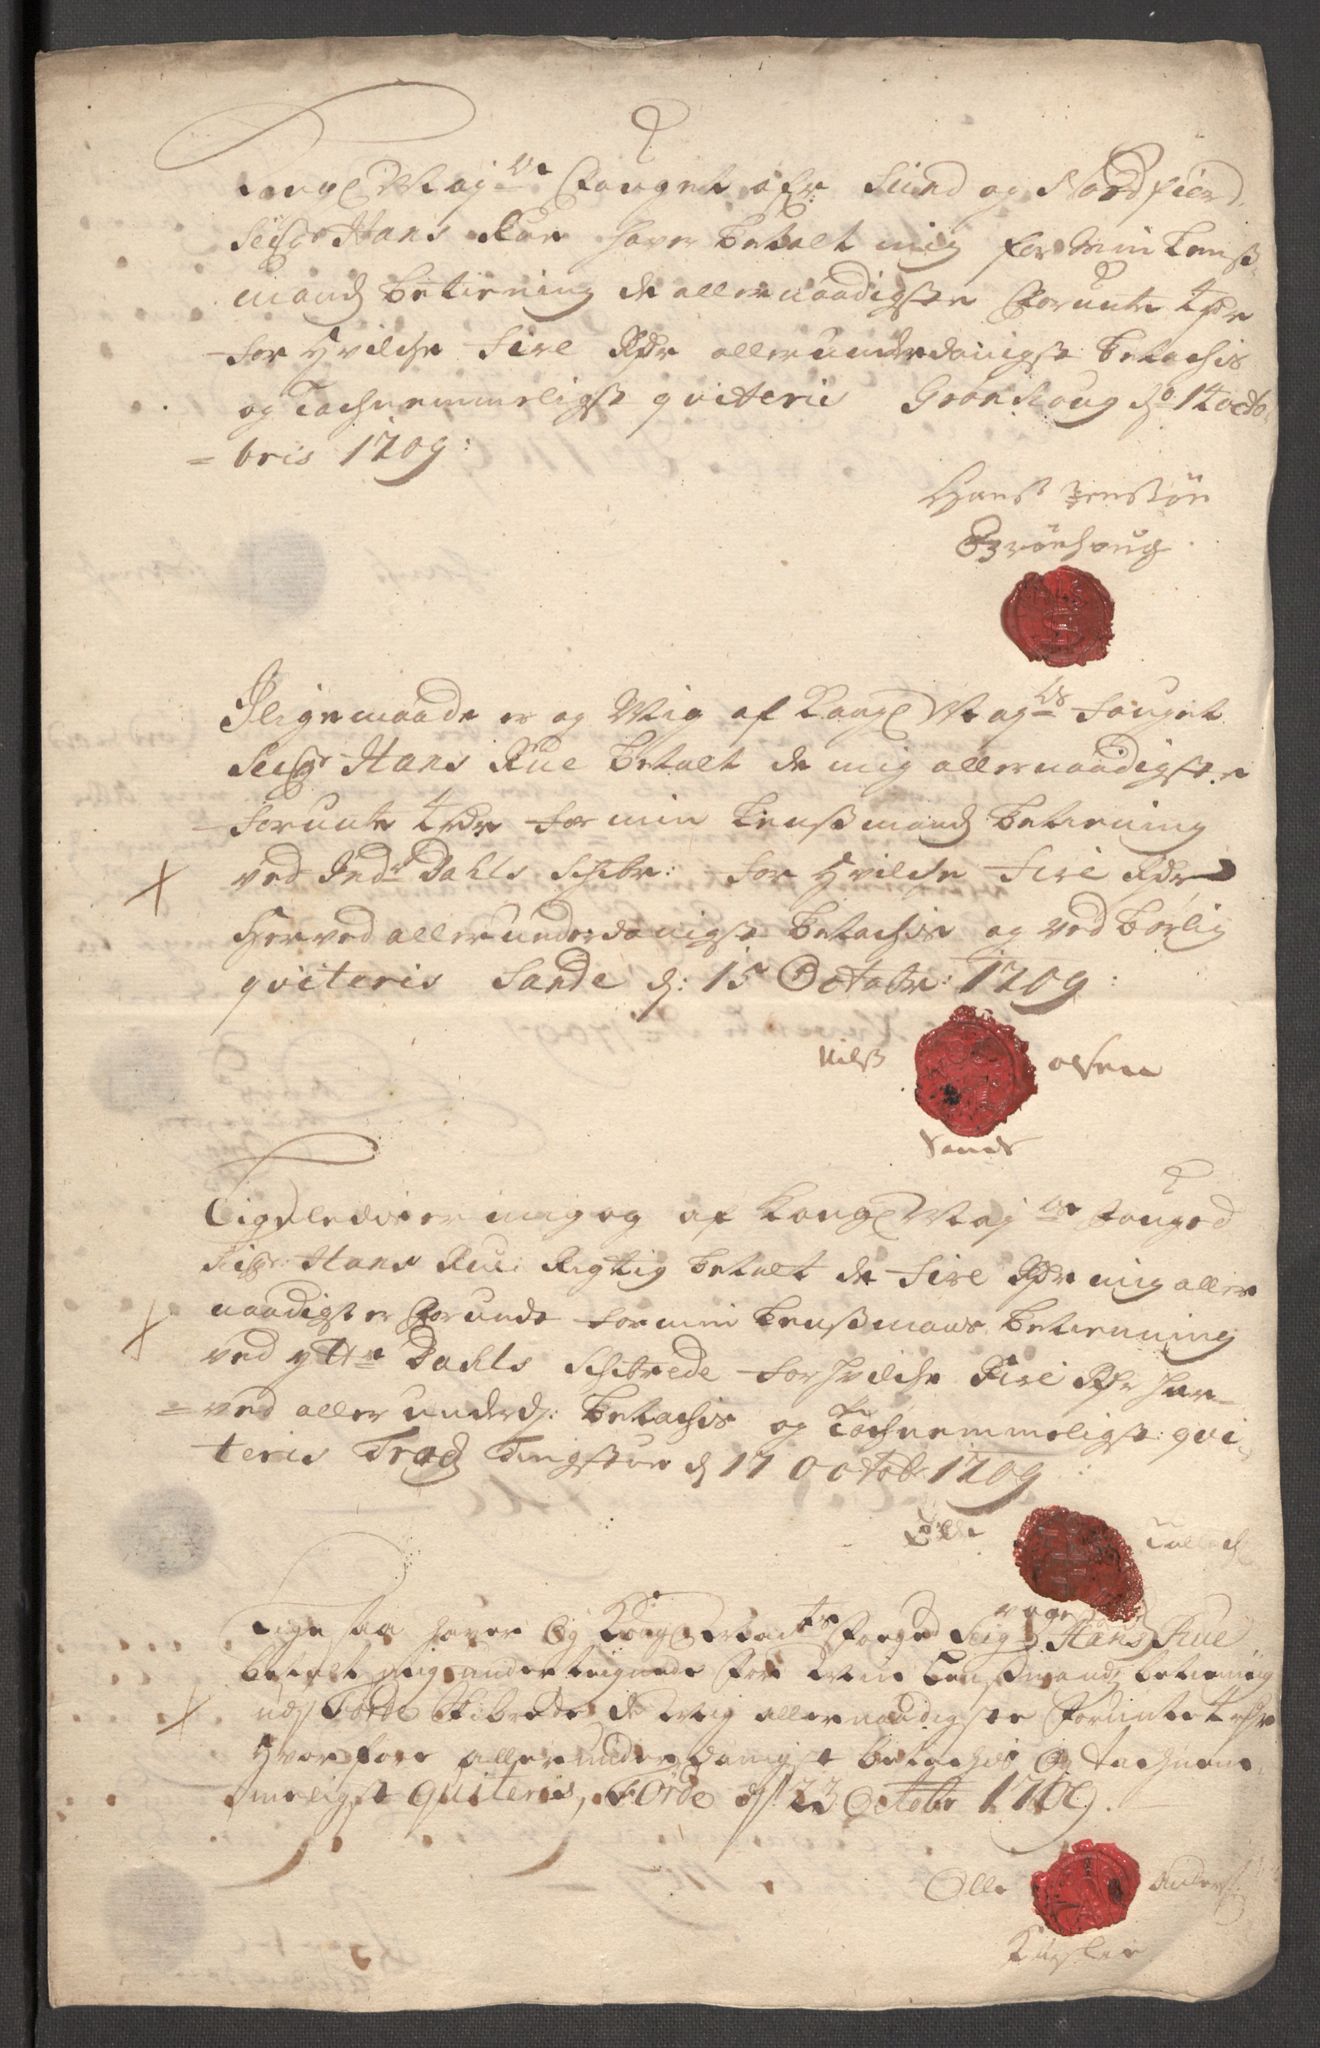 Kongl Maj<sup>ts</sup> Fouget ofr Sund og Nordfiord
Seigr Hans Rue haver betalt mig for Min Lenß-
mands betiening de allernaadigste Forunte 4 rdr
for hvilche fire Rdr allerunderdanigst betachis
og Tachnemmeligst qviteris Grønhoug d: 14 octo-
= bris 1709:
Hanß Jenssøn
Grönhoug
Iligemaade er og Mig af Kongl Maj<sup>ts</sup> fouget
Seigr Hans Rue betalt de mig allernaadigste
forunte 4 rdr for min Lenßmands betiening
ved Indr Dahls Schibr: for hvilche fire Rdr
herved allerunderdanigst betachis og ved børlig
qviteris Sande d: 15 Octobr: 1709:
Nilß olsen
Sande
Ligeledes er mig og af Kongl Maj<sup>ts</sup> Fouged
Sigr. Hans Rue Rigtig betalt de fire Rdr mig aller
naadigster Forunde for min Lenßmans betienning
ved yttre Dahls Schibrede for hvilche Fire Rdr her-
= ved allerunderd: betachis og Tachnemmeligst: qvi-
teris Trad Tingstue d 17 Octobr 1709
Tollech
Lige saa haver og Kongl Maits Foeged Seigr Hans Rue
betalt mig underteignede for Min Lenßmands betiening
udj Førde Skibrede de Mig allernaadigste Forunte 4 rdr
hvorfore allerunderdanigst betachis og tachnem-
meligst quiteris, Førde d 23 Octobr 1709.
Olle Anders